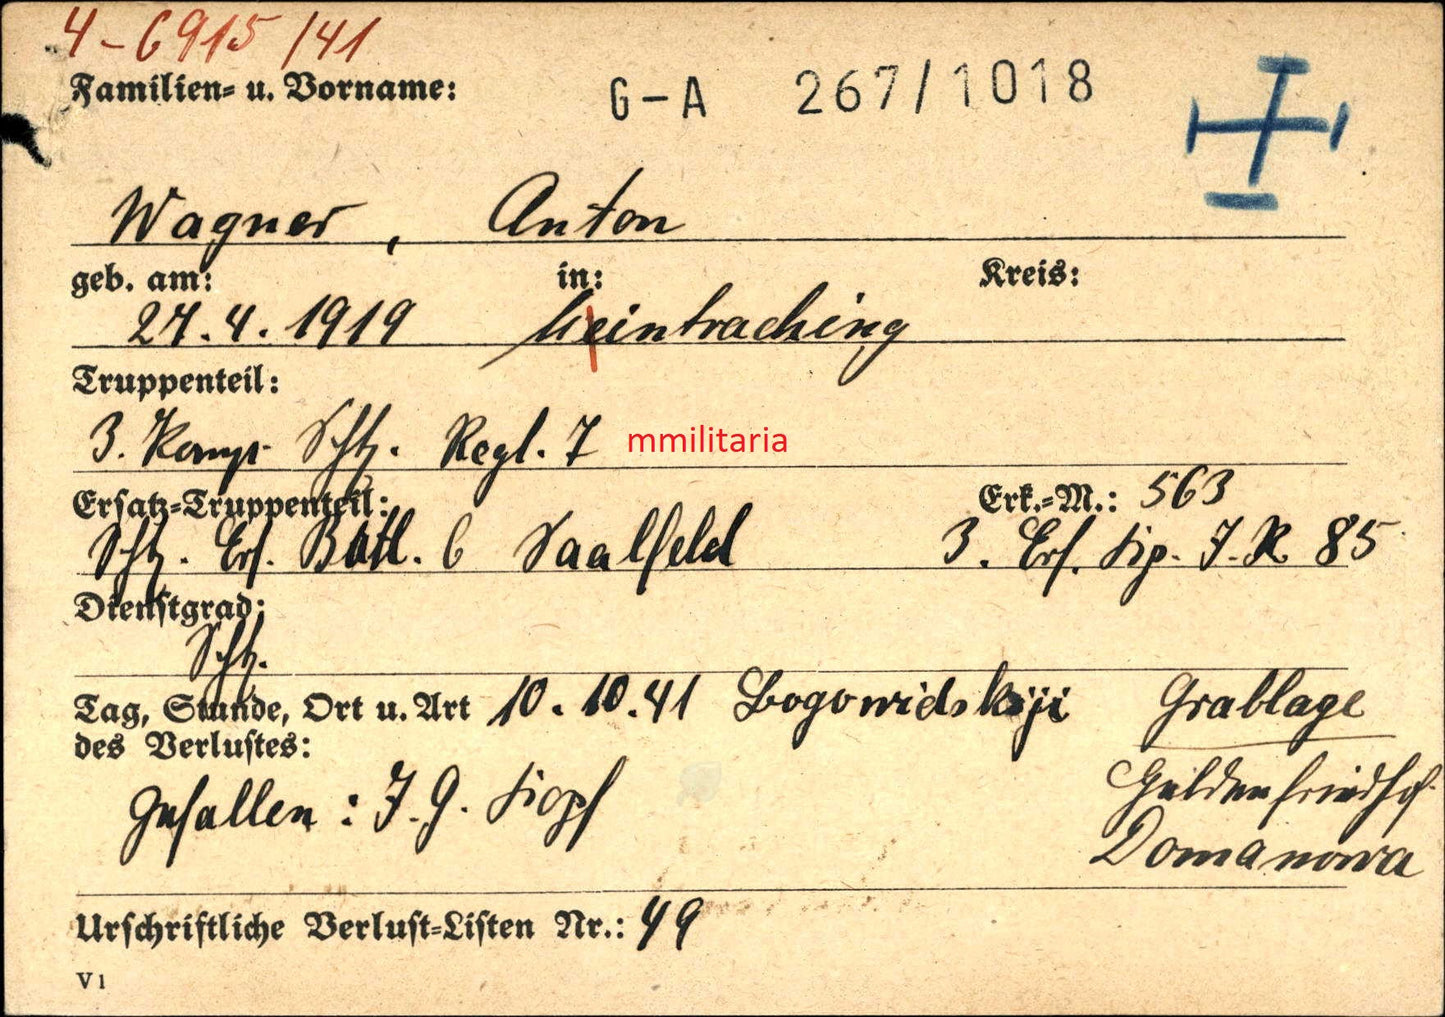 4-6915/41
Familien= u. Vorname:
G-A 267/1018
Wagner, Anton
geb. am: in: Kreis:
27.4.1919 Meintraching
Truppenteil:
3. Komp. Schtz. Regt. 7
mmilitaria
Ersatz=Truppenteil: Erk.=M.: 563
Schtz. Ers. Batl. 6 Saalfeld 3. Ers. Kp. I.R. 85
Dienstgrad:
Schtz.
Tag, Stunde, Ort u. Art 10.10.41 Grablage
des Verlustes:
gefallen: I.G. Kopf Heldenfriedhof
Domanowa
Urschriftliche Verlust=Listen Nr.: 49
V 1